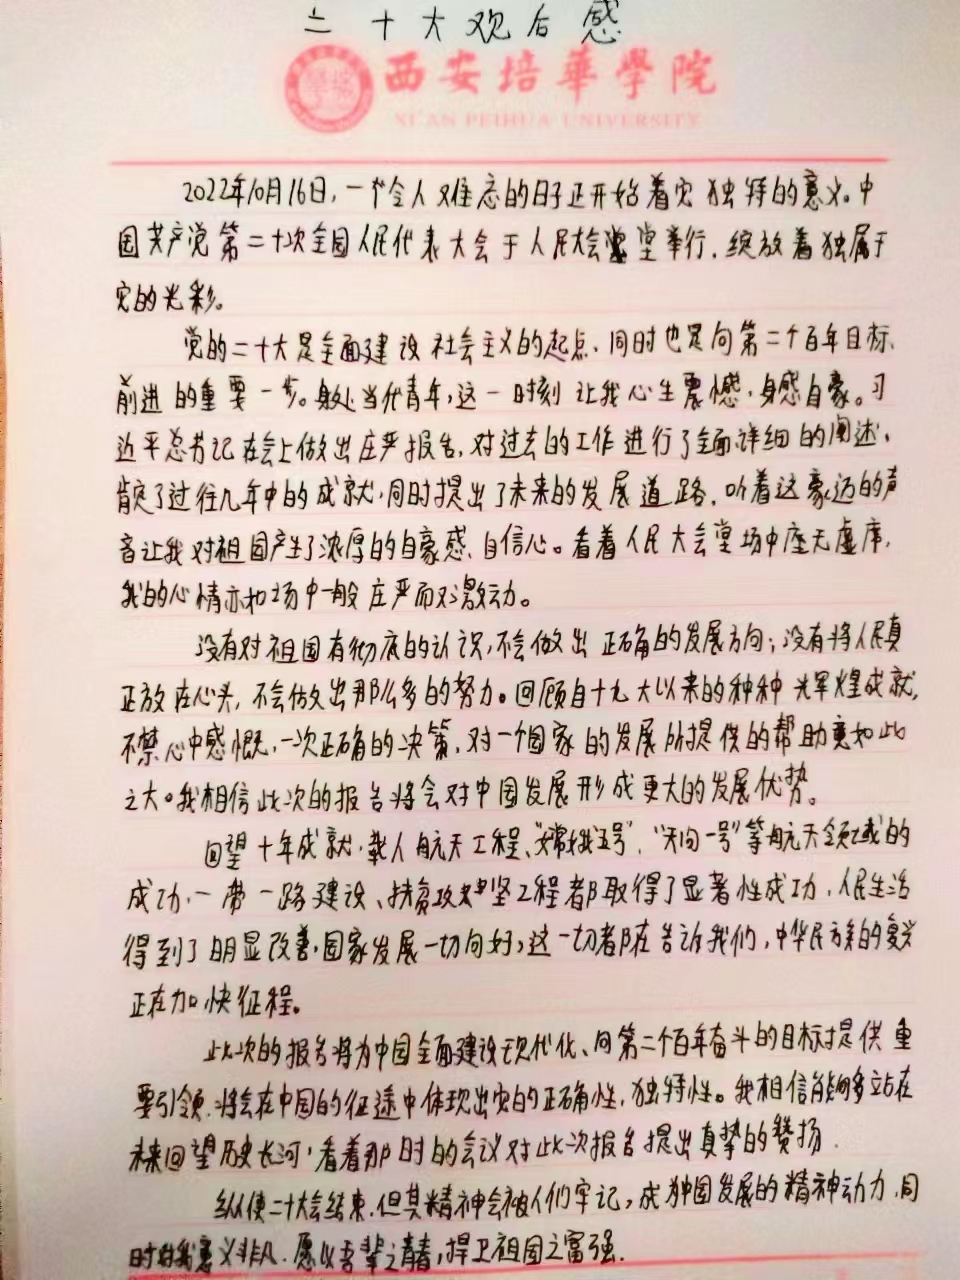 二十大观后感
西安培華學院
XI'AN PEIHUA UNIVERSITY
2022年10月16日,一个令人难忘的日子正开始着它独特的意义。中
国共产党第二十次全国人民代表大会于人民大会堂举行,绽放着独属于
它的光彩。
党的二十大是全面建设社会主义的起点、同时也是向第二个百年目标
前进的重要一步。身处当代青年,这一时刻让我心生震憾,身感自豪。习
近平总书记在会上做出庄严报告,对过去的工作进行了全面详细的阐述,
肯定了过往几年中的成就,同时提出了未来的发展道路,听着这豪迈的声
音让我对祖国产生了浓厚的自豪感、自信心。看着人民大会堂场中座无虚席,
我的心情亦和场中一般庄严而又激动。
没有对祖国有彻底的认识,不会做出正确的发展方向;没有将人民真
正放在心头,不会做出那么多的努力。回顾自十九大以来的种种光辉煌成就,
不禁心中感慨,一次正确的决策,对一个国家的发展所提供的帮助竟如此
之大。我相信此次的报告将会对中国发展形成更大的发展优势。
回望十年成就,载人航天工程、"嫦娥五号"、"天问一号"等航天领域的
成功,一带一路建设、扶贫攻坚工程都取得了显著性成功,人民生活
得到了明显改善,国家发展一切向好,这一切都在告诉我们,中华民族的复兴
正在加快征程。
此次的报告将为中国全面建设现代化、向第二个百年奋斗的目标提供重
要引领,将会在中国的征途中体现出它的正确性,独特性。我相信能够多立站在
未来回望历史长河,看着那时的会议对此次报告提出真挚的赞扬.
纵使二十大会结束,但其精神会被人们牢记,成为中国发展的精神动力,同
时对我意义非凡.愿以吾辈之青春,捍卫祖国之富强.